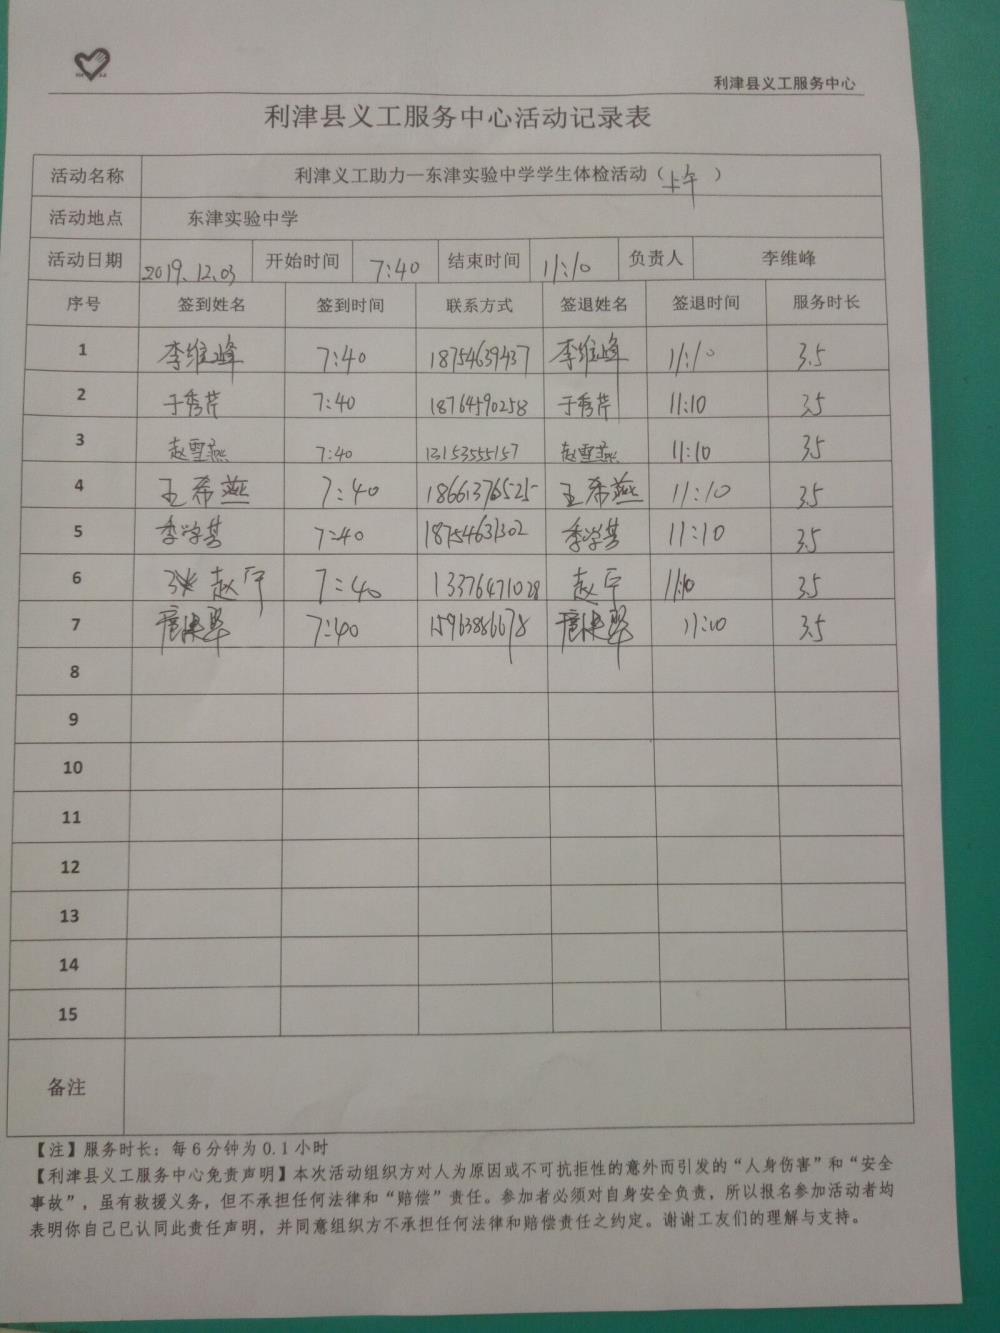 利津县义工服务中心
利津县义工服务中心活动记录表
活动名称 利津义工助力—东津实验中学学生体检活动（上午）
活动地点 东津实验中学
活动日期 2019.12.03 开始时间 7:40 结束时间 11:10 负责人 李维峰
序号 签到姓名 签到时间 联系方式 签退姓名 签退时间 服务时长
1 李维峰 7:40 18754639437 李维峰 11:10 3.5
2 于秀芹 7:40 18764590258 于秀芹 11:10 3.5
3 赵雪燕 7:40 13153555157 赵雪燕 11:10 3.5
4 王希燕 7:40 18661376525 王希燕 11:10 3.5
5 季学英 7:40 18754631302 季学英 11:10 3.5
6 赵宁 7:40 13376471028 赵宁 11:10 3.5
7 7:40 15963886678 11:10 3.5
8
9
10
11
12
13
14
15
备注
【注】服务时长：每6分钟为0.1小时
【利津县义工服务中心免责声明】本次活动组织方对人为原因或不可抗拒性的意外而引发的“人身伤害”和“安全
事故”，虽有救援义务，但不承担任何法律和“赔偿”责任。参加者必须对自身安全负责，所以报名参加活动者均
表明你自己已认同此责任声明，并同意组织方不承担任何法律和赔偿责任之约定。谢谢工友们的理解与支持。